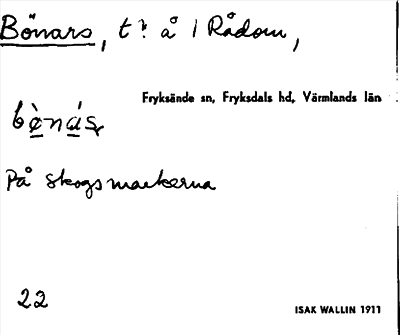 Bönars, t? å 1 Rådom,
Fryksände sn, Fryksdals hd, Värmlands län
På skogsmarkerna
22
ISAK WALLIN 1911